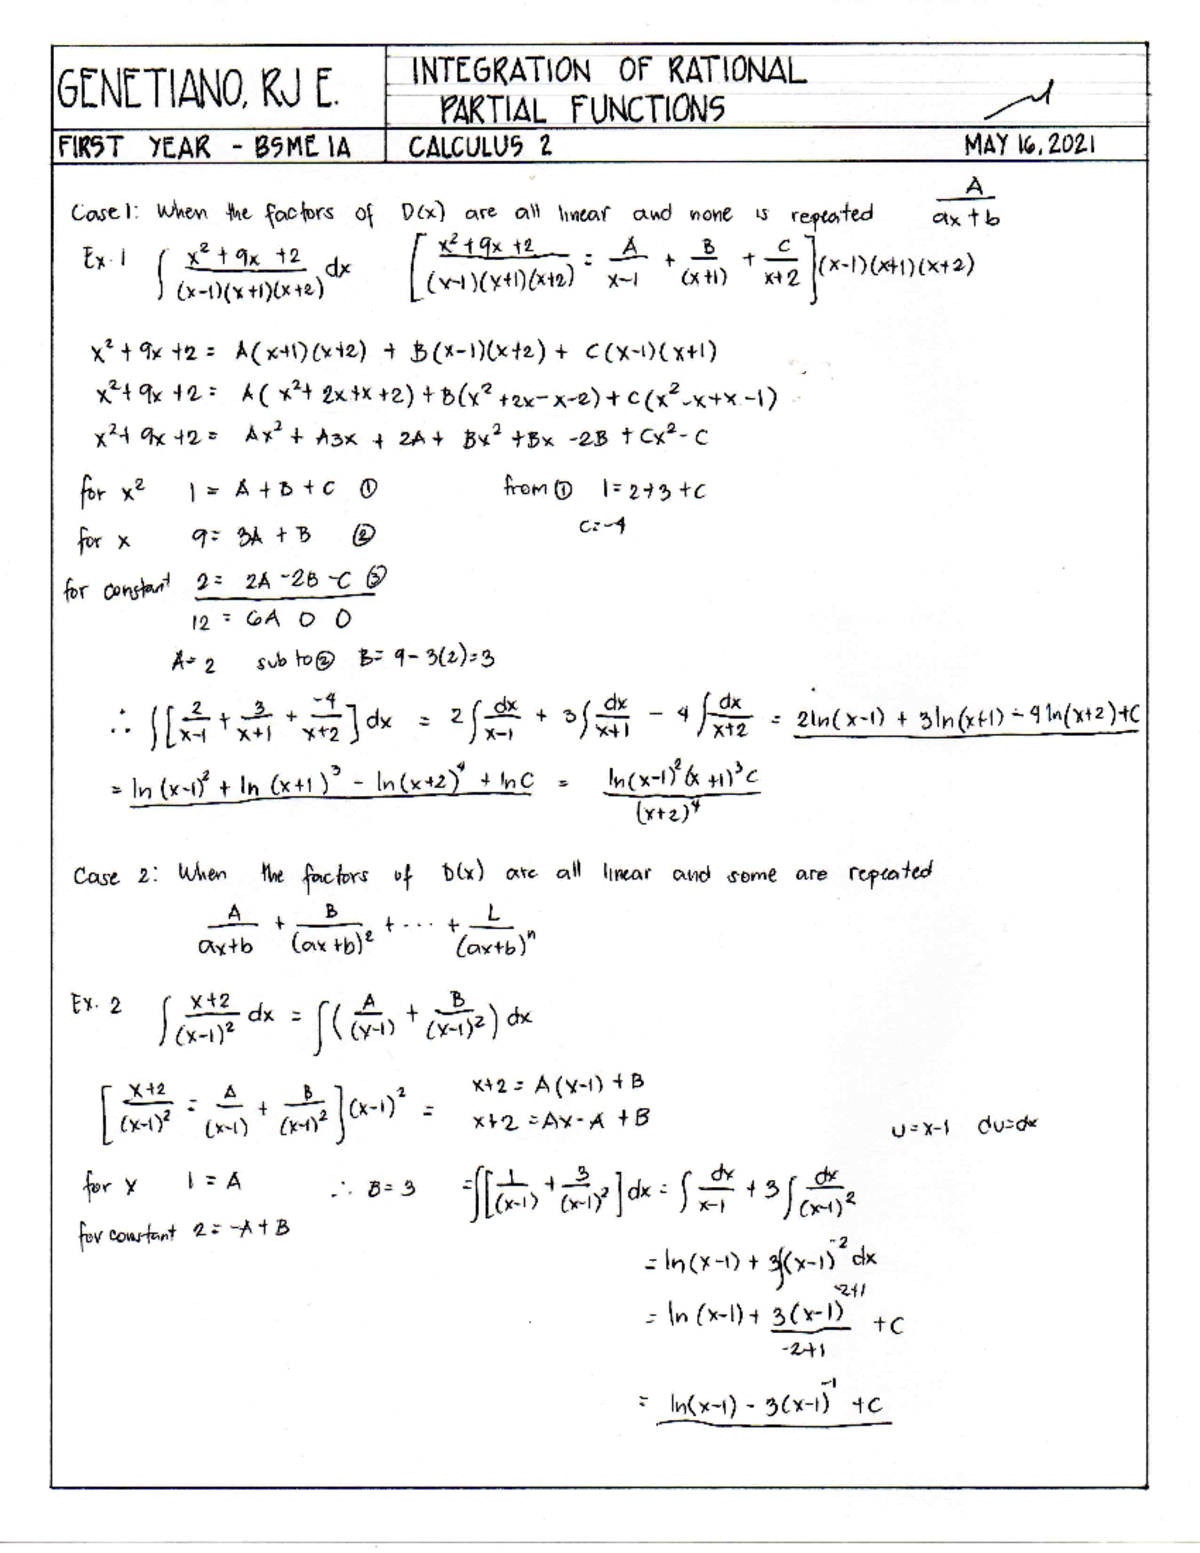 GENETIANO, RJ E.
INTEGRATION OF RATIONAL
PARTIAL FUNCTIONS
FIRST YEAR - BSME 1A
CALCULUS 2
MAY 16, 2021
Case 1: When the factors of D(x) are all linear and none is repeated A/(ax+b)
Ex. 1 ∫ (x²+9x+2)/((x-1)(x+1)(x+2)) dx [(x²+9x+2)/((x-1)(x+1)(x+2)) = A/(x-1) + B/(x+1) + C/(x+2)](x-1)(x+1)(x+2)
x²+9x+2 = A(x+1)(x+2) + B(x-1)(x+2) + C(x-1)(x+1)
x²+9x+2 = A(x²+2x+x+2)+B(x²+2x-x-2)+C(x²-x+x-1)
x²+9x+2 = Ax²+A3x+2A+Bx²+Bx-2B+Cx²-C
for x² 1 = A+B+C ① from ① 1=2+3+C
for x 9 = 3A+B ② C=-4
for constant 2 = 2A-2B-C ③
12 = 6A 0 0
A=2 sub to ② B= 9-3(2)=3
∴ ∫[2/(x-1) + 3/(x+1) + -4/(x+2)]dx = 2∫dx/(x-1) + 3∫dx/(x+1) - 4∫dx/(x+2) = 2ln(x-1) + 3ln(x+1) - 4ln(x+2)+C
= ln(x-1)² + ln(x+1)³ - ln(x+2)⁴ + lnC = ln(x-1)²(x+1)³C/(x+2)⁴
Case 2: When the factors of D(x) are all linear and some are repeated
A/(ax+b) + B/(ax+b)² + ... + L/(ax+b)ⁿ
Ex. 2 ∫ (x+2)/(x-1)² dx = ∫(A/(x-1) + B/(x-1)²) dx
[(x+2)/(x-1)² = A/(x-1) + B/(x-1)²](x-1)² = x+2 = A(x-1)+B
x+2 = Ax-A+B u=x-1 du=dx
for x 1 = A ∴ B=3 =∫[1/(x-1) + 3/(x-1)²]dx = ∫dx/(x-1) + 3∫dx/(x-1)²
for constant 2 = -A+B
= ln(x-1) + 3∫(x-1)⁻² dx
= ln(x-1) + 3(x-1)⁻²⁺¹/(-2+1) + C
= ln(x-1) - 3(x-1)⁻¹ + C